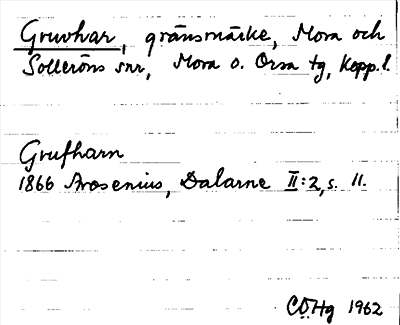 Gruvhar, gränsmärke, Mora och
Solleröns snr, Mora o. Orsa tg, Kopp.l.
Grufharn
1866 Arosenius, Dalarne II:2, s. 11.
CO.Hg 1962